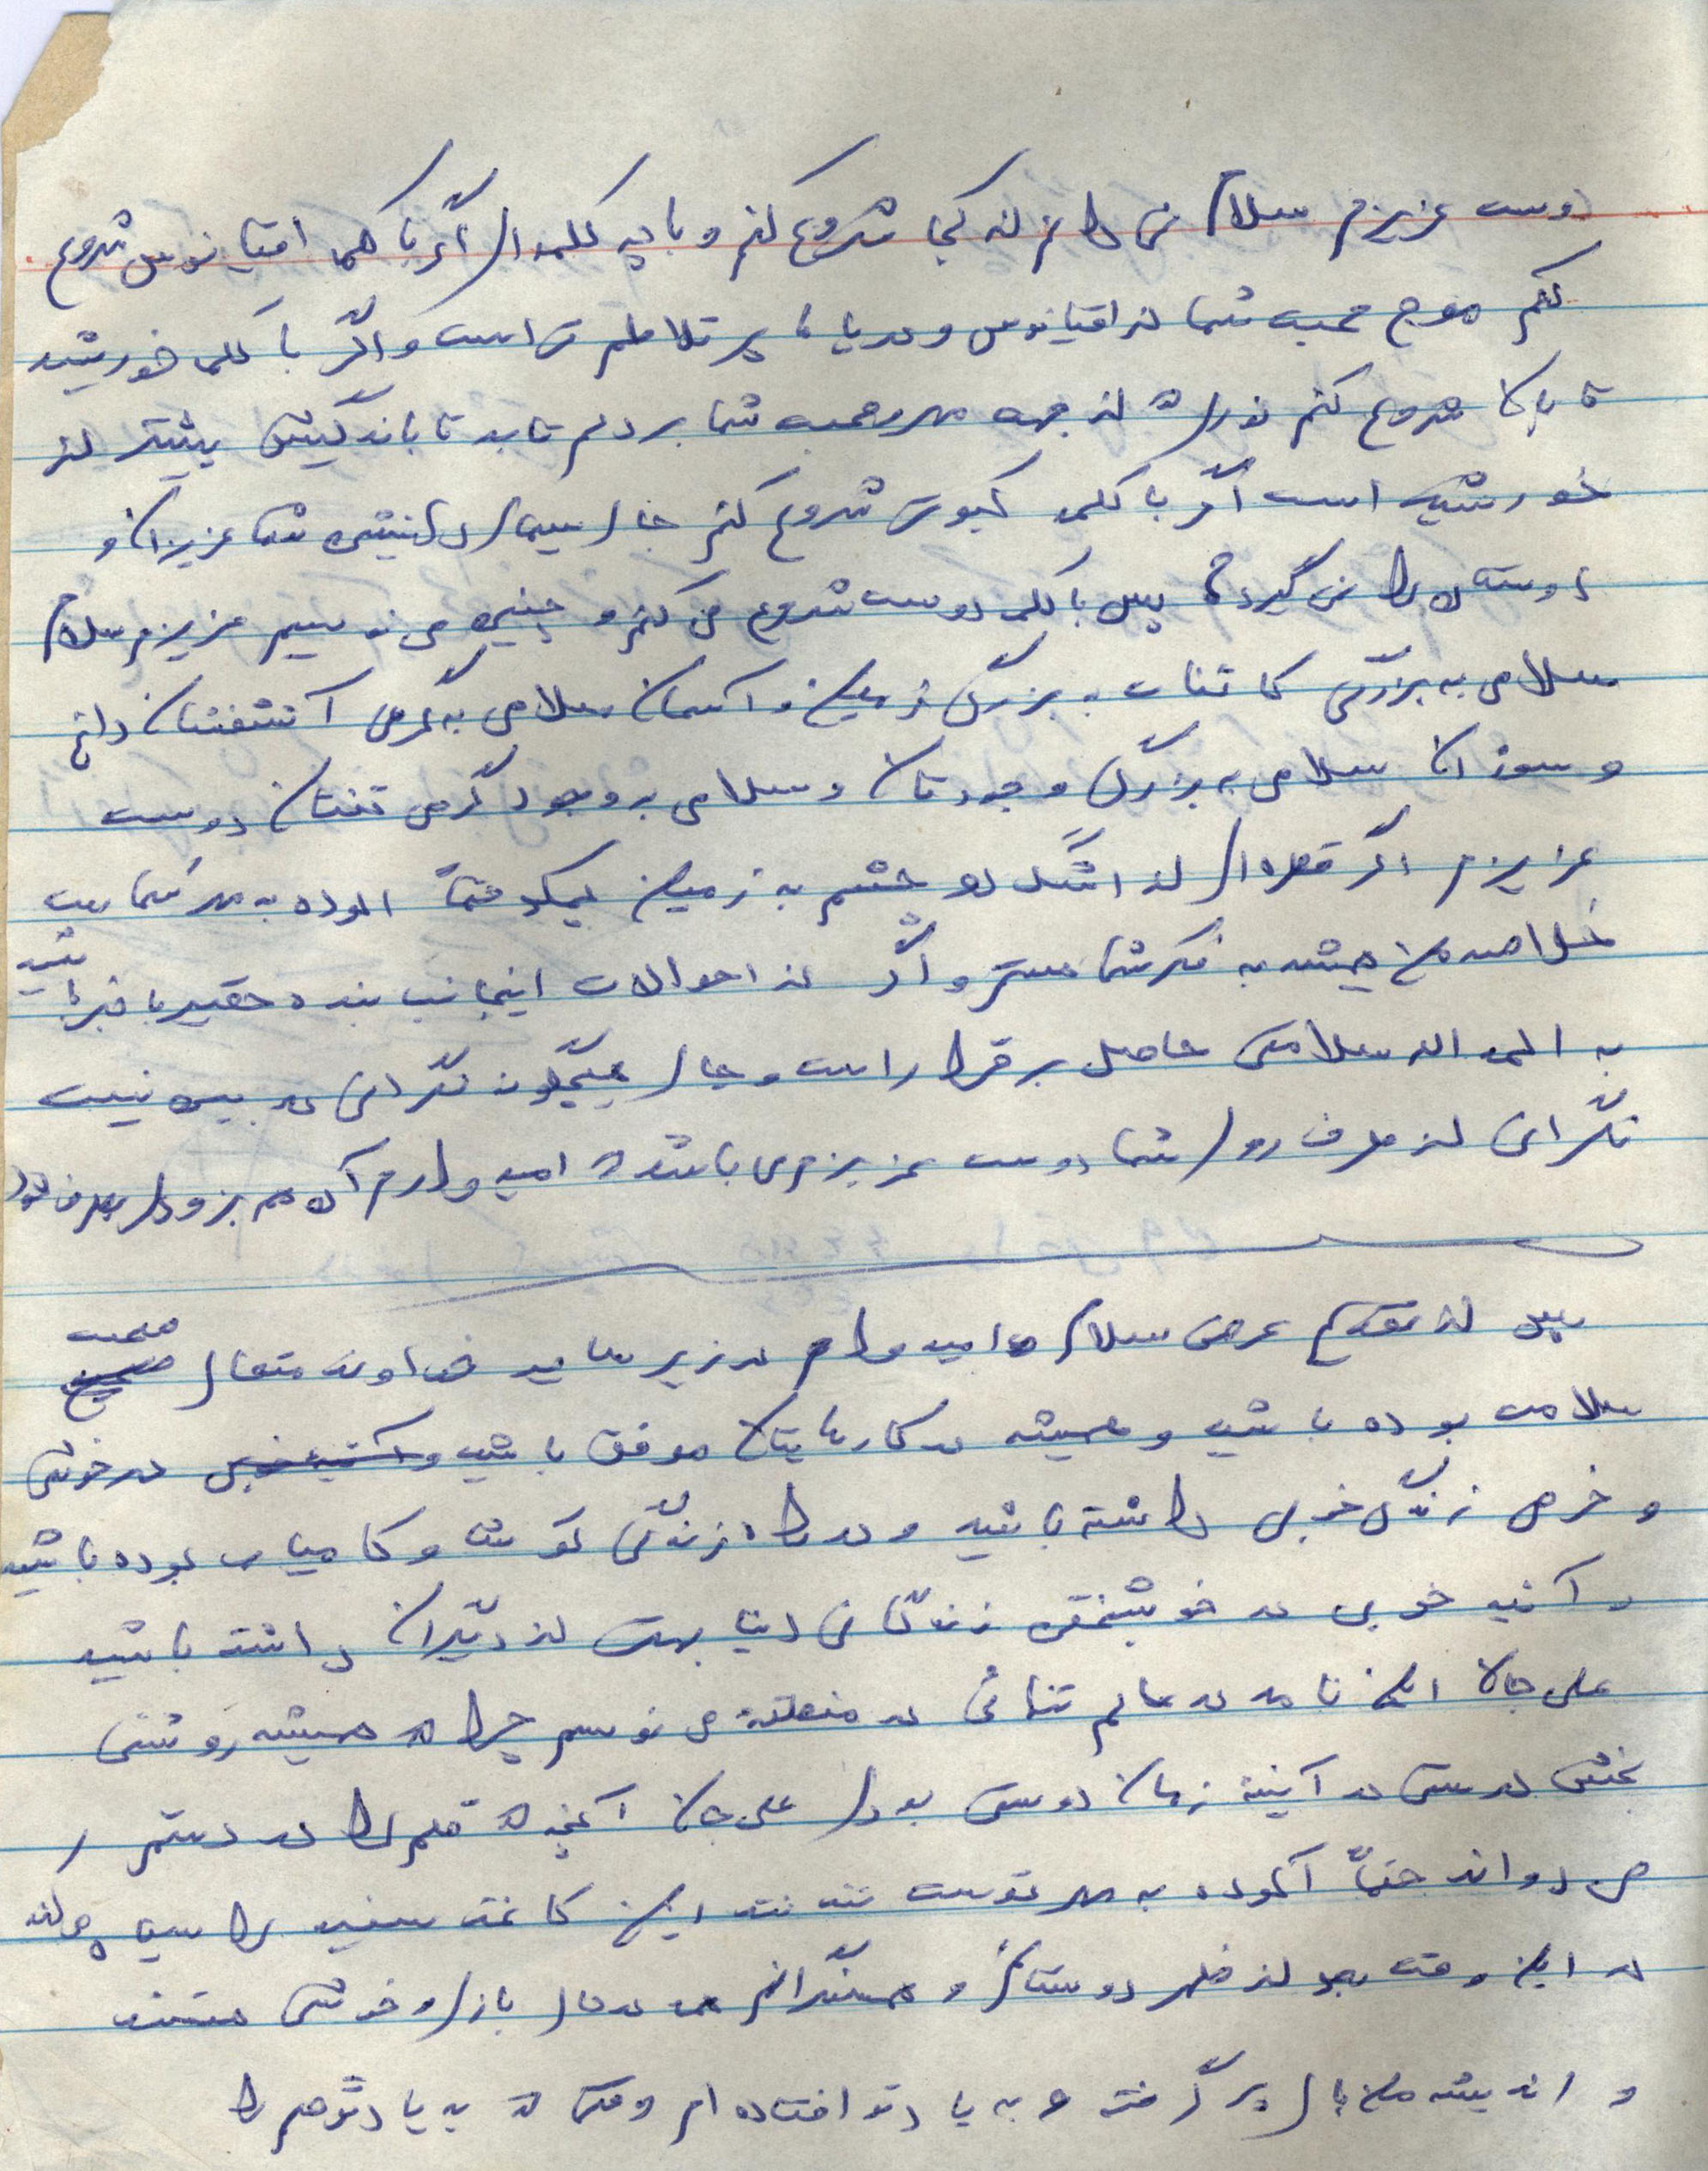 دوست عزیزم سلام نمی دانم از کجا شروع کنم و با چه کلمه ای اگر با کلمه اقیانوس شروع
کنم موج محبت شما از اقیانوس و دریا ها پر تلاطم تر است و اگر با کلمه خورشید
تابان شروع کنم نوری که از جهت مهر و محبت شما بر دلم تابد تابندگیش بیشتر از
خورشید است اگر با کلمه کبوتر شروع کنم جای سیمای دلنشین شما عزیزان و
دوستان را نمی گیرد پس با کلمه دوست شروع می کنم و چنین می نویسم عزیزم سلام
سلامی به بزرگی کائنات به بزرگی زمین و آسمان سلامی به گرمی آتشفشان داغ
و سوزان سلامی به بزرگی وجودتان و سلامی به وجود گرمی تنتان دوست
عزیزم اگر قطره ای از اشک دو چشم به زمین بچکد حتماً آلوده به مهر شماست
خلاصه من همیشه به فکر شما هستم و اگر از احوالات اینجانب بنده حقیر با خبر باشید
به الحمد الله سلامتی حاصل برقرار است و جای هیچگونه نگرانی در بین نیست
نگرانی از طرف روی شما دوست عزیزم می باشد که امیدوارم آن هم بزودی برطرف شود
پس از تقدیم عرض سلام امیدوارم در زیر سایه خداوند متعال صحیح
سلامت بوده باشید و همیشه در کارهایتان موفق باشید و در خوشی
و خرمی زندگی خوبی داشته باشید و در راه زندگی کوشا و کامیاب بوده باشید
و آتیه خوبی در خوشبختی زندگانی دنیا بهتر از دیگران داشته باشید
علی جان این نامه در عالم تنهائی در منطقه می نویسم چرا که همیشه روشنی
بخش دوستی در آئینه زمان دوستی بود علی جان آنچه که قلم را در دستم
می دواند حتماً آلوده به مهر توست این کاغذ سفید را سیاه می کند
در این وقت بعد از ظهر دوستانم و همسنگرانم همه در حال بازی و خوشی هستند
و اندیشه من بال پر گرفته و به یاد تو افتاده ام وقتی که به یاد تو هم را